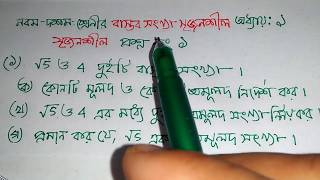 নবম-দশম শ্রেণীর বাস্তব সংখ্যা সৃজনশীল অধ্যায়: ১
সৃজনশীল প্রশ্ন ১
(১) √5 ও 4 দুইটি বাস্তব সংখ্যা।
(ক) কোনটি মূলদ ও কোনটি অমূলদ নির্দেশ কর।
(খ) √5 ও 4 এর মধ্যে অমূলদ সংখ্যা নির্ণয় কর।
(গ) প্রমান কর যে, √5 একটি অমূলদ সংখ্যা।